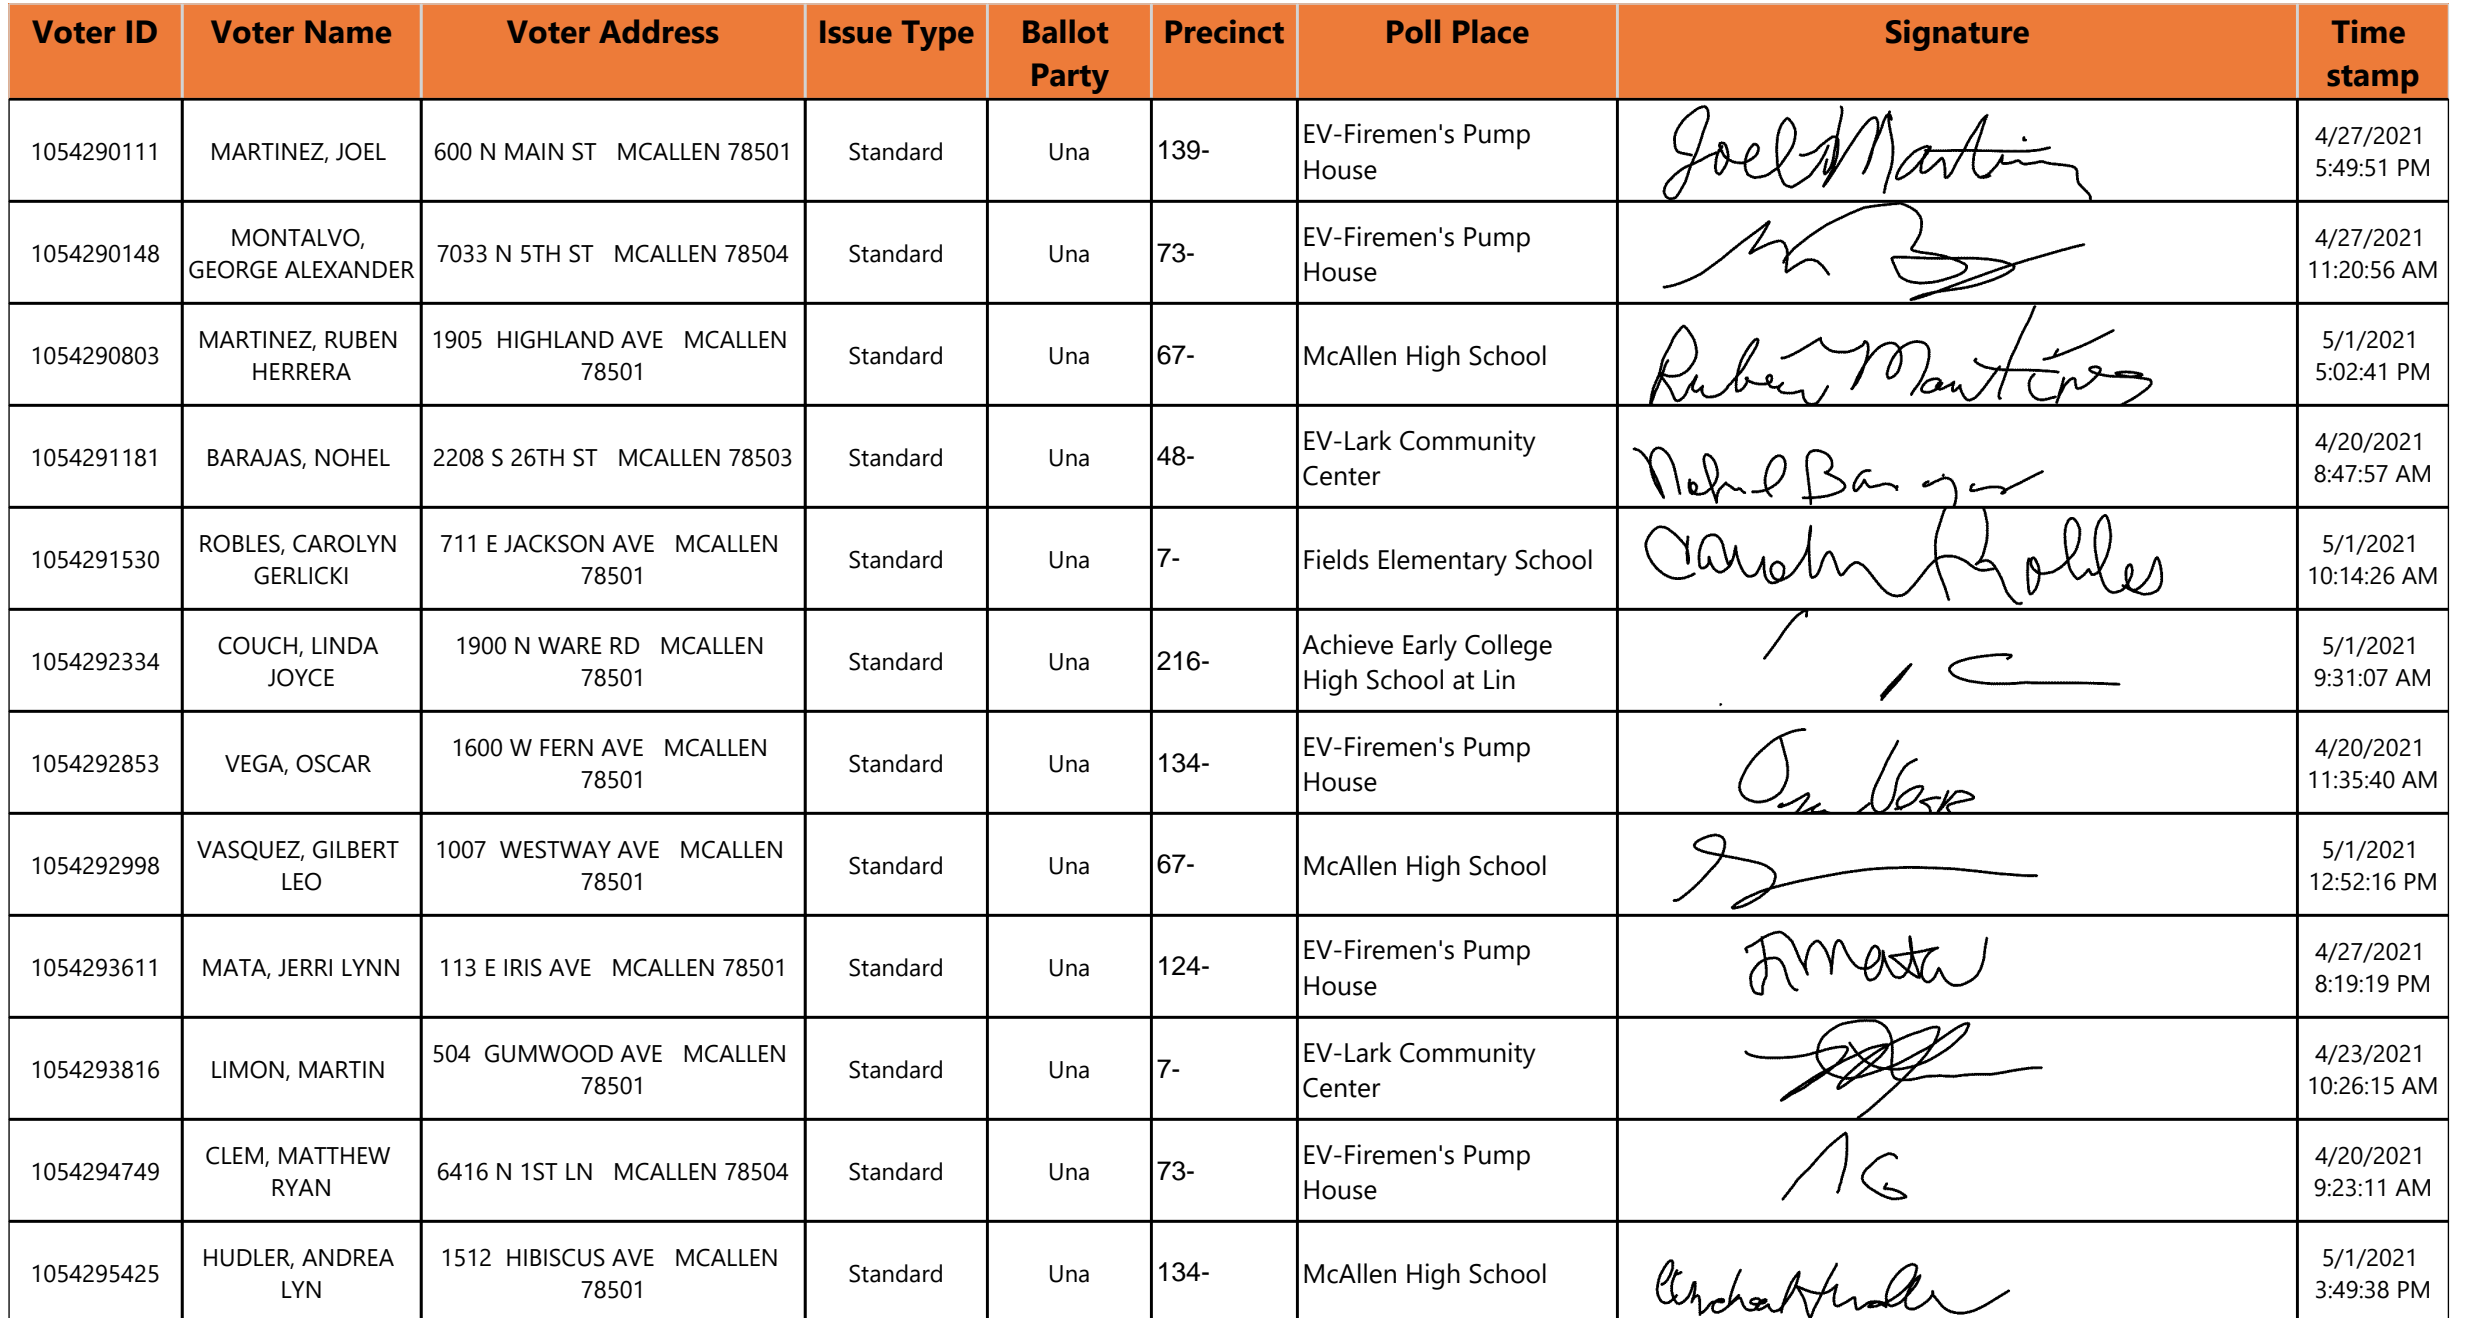 Voter ID Voter Name Voter Address Issue Type Ballot Party Precinct Poll Place Signature Time stamp
1054290111 MARTINEZ, JOEL 600 N MAIN ST MCALLEN 78501 Standard Una 139- EV-Firemen's Pump House Joel Martinez 4/27/2021 5:49:51 PM
1054290148 MONTALVO, GEORGE ALEXANDER 7033 N 5TH ST MCALLEN 78504 Standard Una 73- EV-Firemen's Pump House 4/27/2021 11:20:56 AM
1054290803 MARTINEZ, RUBEN HERRERA 1905 HIGHLAND AVE MCALLEN 78501 Standard Una 67- McAllen High School Ruben Martinez 5/1/2021 5:02:41 PM
1054291181 BARAJAS, NOHEL 2208 S 26TH ST MCALLEN 78503 Standard Una 48- EV-Lark Community Center Nohel Barajas 4/20/2021 8:47:57 AM
1054291530 ROBLES, CAROLYN GERLICKI 711 E JACKSON AVE MCALLEN 78501 Standard Una 7- Fields Elementary School Carolyn Robles 5/1/2021 10:14:26 AM
1054292334 COUCH, LINDA JOYCE 1900 N WARE RD MCALLEN 78501 Standard Una 216- Achieve Early College High School at Lin 5/1/2021 9:31:07 AM
1054292853 VEGA, OSCAR 1600 W FERN AVE MCALLEN 78501 Standard Una 134- EV-Firemen's Pump House 4/20/2021 11:35:40 AM
1054292998 VASQUEZ, GILBERT LEO 1007 WESTWAY AVE MCALLEN 78501 Standard Una 67- McAllen High School 5/1/2021 12:52:16 PM
1054293611 MATA, JERRI LYNN 113 E IRIS AVE MCALLEN 78501 Standard Una 124- EV-Firemen's Pump House J Mata 4/27/2021 8:19:19 PM
1054293816 LIMON, MARTIN 504 GUMWOOD AVE MCALLEN 78501 Standard Una 7- EV-Lark Community Center 4/23/2021 10:26:15 AM
1054294749 CLEM, MATTHEW RYAN 6416 N 1ST LN MCALLEN 78504 Standard Una 73- EV-Firemen's Pump House 4/20/2021 9:23:11 AM
1054295425 HUDLER, ANDREA LYN 1512 HIBISCUS AVE MCALLEN 78501 Standard Una 134- McAllen High School Andrea Hudler 5/1/2021 3:49:38 PM